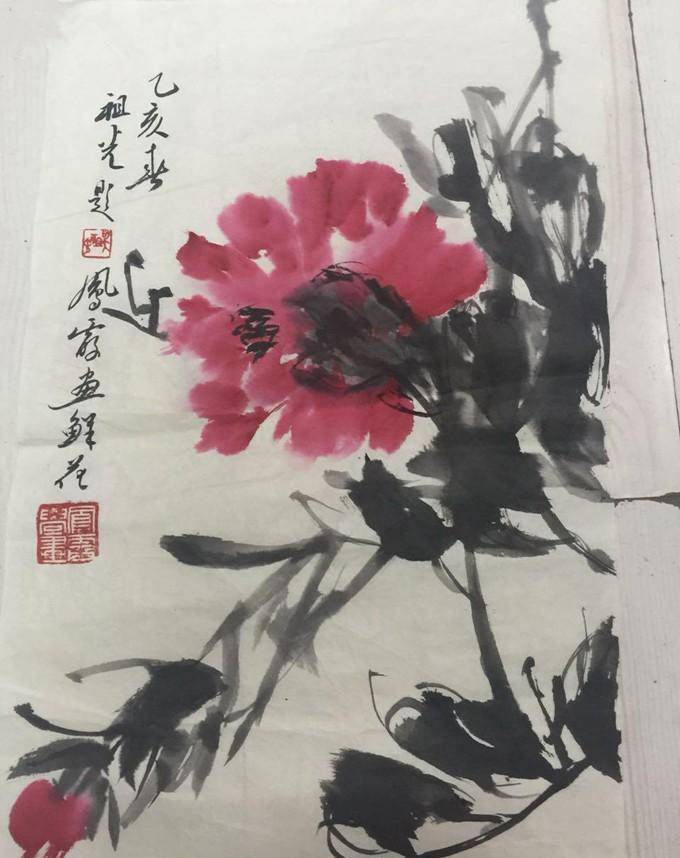 乙亥春
祖光題
鳳霞畫鮮花